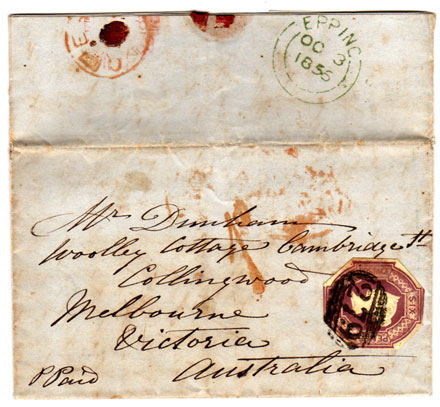 EPPING
OC 3
1856
Mr Dunham
Woolley Cottage Cambridge St
Collingwood
Melbourne
Victoria
Australia
P Paid
SIX